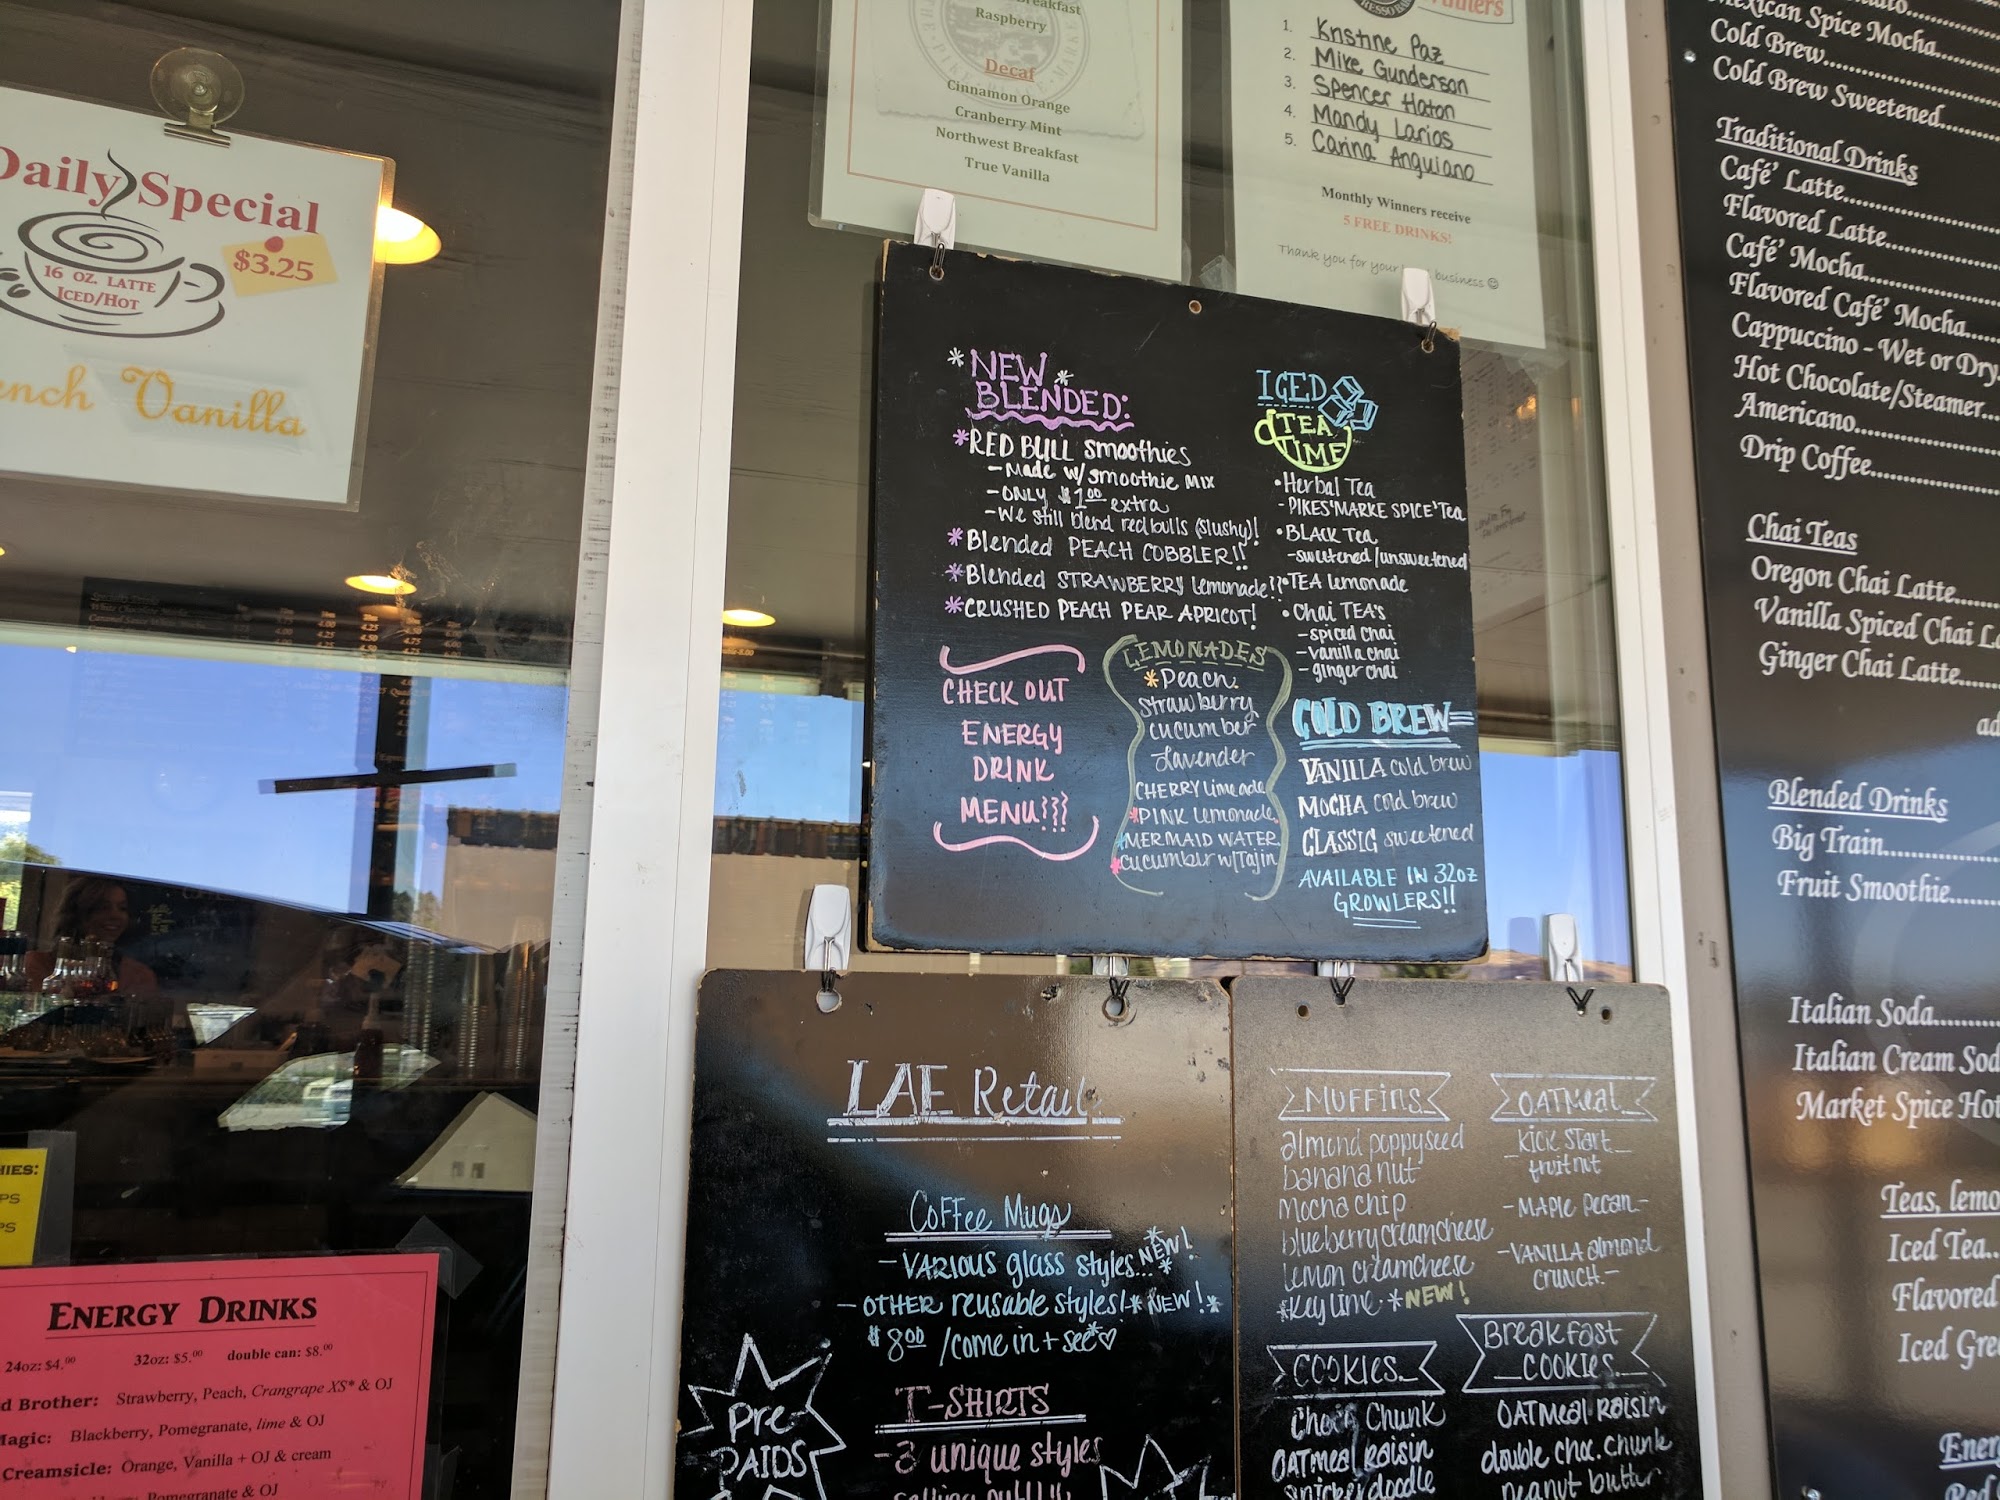 Daily Special
$3.25
16 OZ. LATTE
ICED/HOT
Vanilla
Breakfast
Raspberry
Decaf
Cinnamon Orange
Cranberry Mint
Northwest Breakfast
True Vanilla
1. Kristine Paz
2. Mike Gunderson
3. Spencer Haton
4. Mandy Larios
5. Carina Anguiano
Monthly Winners receive
5 FREE DRINKS!
Thank you for your business
*NEW*
BLENDED:
*RED BULL smoothies
- Made w/ smoothie MIX
- ONLY $1.00 extra
- We still blend redbulls (slushy)!
*Blended PEACH COBBLER!!
*Blended STRAWBERRY Lemonade!!
*CRUSHED PEACH PEAR APRICOT!
CHECK OUT
ENERGY
DRINK
MENU!!!
LEMONADES
*Peach
Strawberry
cucumber
Lavender
CHERRY Limeade
*PINK Lemonade
MERMAID WATER
*cucumber w/Tajin
ICED
TEA
TIME
•Herbal Tea
- PIKES'MARKE SPICE'Tea
•BLACK Tea
- sweetened/unsweetened
•TEA lemonade
•Chai TEA'S
- spiced chai
- vanilla chai
- ginger chai
COLD BREW
VANILLA cold brew
MOCHA cold brew
CLASSIC sweetened
AVAILABLE IN 32oz
GROWLERS!!
LAE Retail
Coffee Mugs
- VARIOUS glass styles... *NEW!*
- OTHER reusable styles! *NEW!*
$8.00 / come in + see ♡
T-SHIRTS
- 3 unique styles
Pre-
PAIDS
MUFFINS
almond poppyseed
banana nut
Mocha chip
blueberry creamcheese
Lemon creamcheese
*Key Lime *NEW!
OATMEAL
- KICK START -
fruit nut
- MAPLE Pecan -
- VANILLA almond
CRUNCH. -
COOKIES
Choc. Chunk
OATMEAL RAISIN
snickerdoodle
Breakfast
COOKIES
OATMEAL RAISIN
double choc. chunk
peanut butter
Mexican Spice Mocha
Cold Brew
Cold Brew Sweetened
Traditional Drinks
Café' Latte
Flavored Latte
Café' Mocha
Flavored Café' Mocha
Cappuccino - Wet or Dry
Hot Chocolate/Steamer
Americano
Drip Coffee
Chai Teas
Oregon Chai Latte
Vanilla Spiced Chai
Ginger Chai Latte
Blended Drinks
Big Train
Fruit Smoothie
Italian Soda
Italian Cream
Market Spice
Teas,
Iced Tea
Flavored
Iced
ENERGY DRINKS
24oz: $4.00 32oz: $5.00 double can: $8.00
Brother: Strawberry, Peach, Crangrape XS* & OJ
Magic: Blackberry, Pomegranate, lime & OJ
Creamsicle: Orange, Vanilla + OJ & cream
Pomegranate & OJ